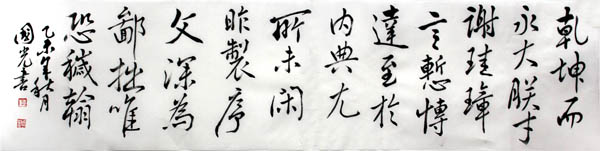 乾坤而
永大朕才
謝珪璋
言慙博
達至於
内典尤
所未閑
昨製序
文深為
鄙拙唯
恐穢翰
乙未年秋月
國光書